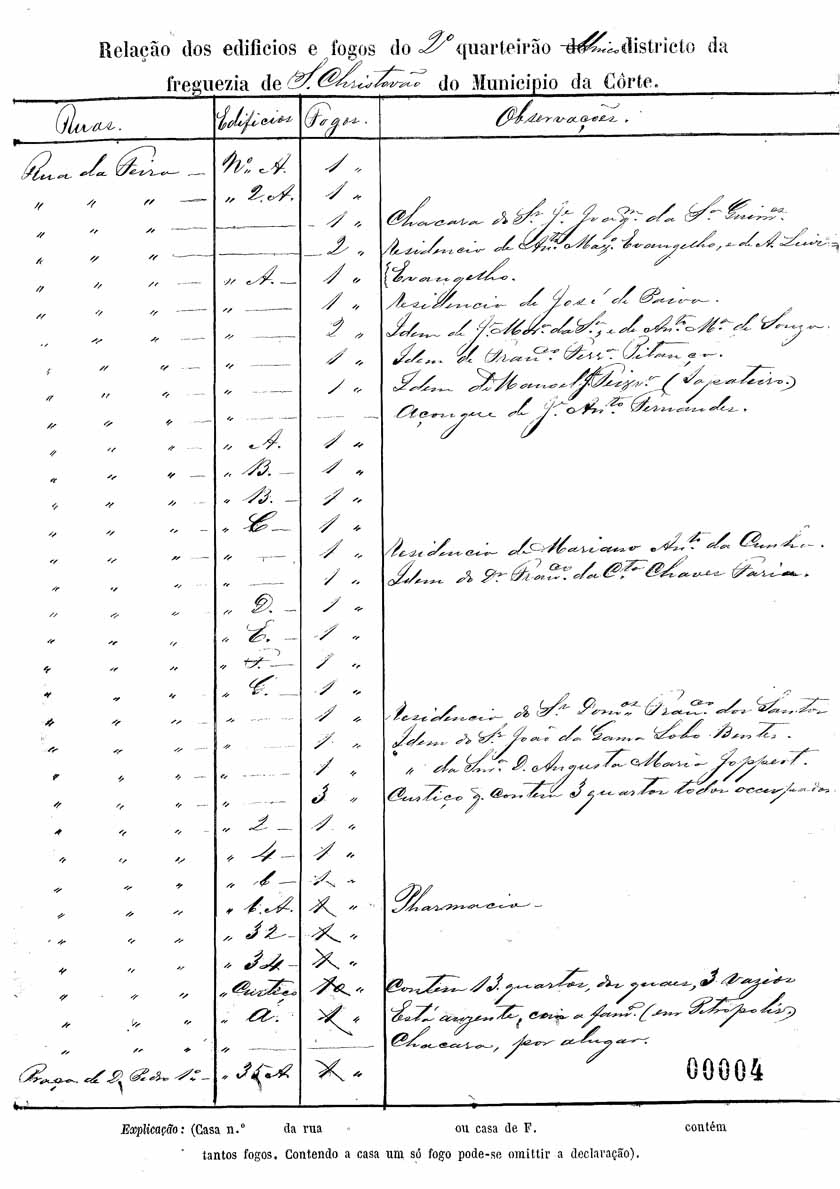 Relação dos edificios e fogos do 2º quarteirão do Unico districto da
freguezia de S. Christovão do Municipio da Côrte.
Ruas. Edificios Fogos. Observações.
Rua da Feira — Nº A. 1 "
" " " — " 2.A. 1 "
" " " — — 1 " Chacara do Sr. Je. Joaqm. da Sa. Guimes.
" " " — — 2 " Residencia de Anto. Maxo. Evangelho, e de A. Luiz
" " " — " A. — 1 " {Evangelho.
" " " — " — 1 " Residencia de José de Paiva.
" " " — " — 2 " Idem de Je. Mo. da Sa., e de Anto. Ma. de Souza.
" " " — " — 1 " Idem de Franco. Ferra. Pitança.
" " " — " — 1 " Idem de Manoel J. Teixra. (Sapateiro.)
" " " " — — Açougue de Je. Anto. Fernandes.
" " " — " A. 1 "
" " " — " B. — 1 "
" " " — " B. — 1 "
" " " — " C — 1 "
" " " — " — 1 " Residencia de Mariano Anto. da Cunha.
" " " — " — 1 " Idem do Dr. Franco. da Cta. Chaves Faria.
" " " " D. — 1 "
" " " " E. — 1 "
" " " — " F. — 1 "
" " " " G. — 1 "
" " " — " — 1 " Residencia do Sr. Domos. Franco. dos Santos
" " " — " — 1 " Idem do Sr. João da Gama Lobo Bentes.
" " " — " — 1 " " da Snra. D. Augusta Maria Joppert.
" " " — " — 3 " Curtiço q. contem 3 quartos todos occupados.
" " " — " 2 — 1 "
" " " " 4 — 1 "
" " " " 6 — 1 "
" " " " 6.A. 1 " Pharmacia —
" " " " 32 — 1 "
" " " " 34 — 1 "
" " " " Curtiço 10 " Contem 13 quartos, dos quaes, 3 vazios
" " " " a. 1 " Está auzente, com a fama. (em Petropolis)
" " " " — Chacara, por alugar.
Praça de D. Pedro 1º — " 35 A 1 "
00004
Explicação: (Casa n.º da rua ou casa de F. contém
tantos fogos. Contendo a casa um só fogo pode-se omittir a declaração).